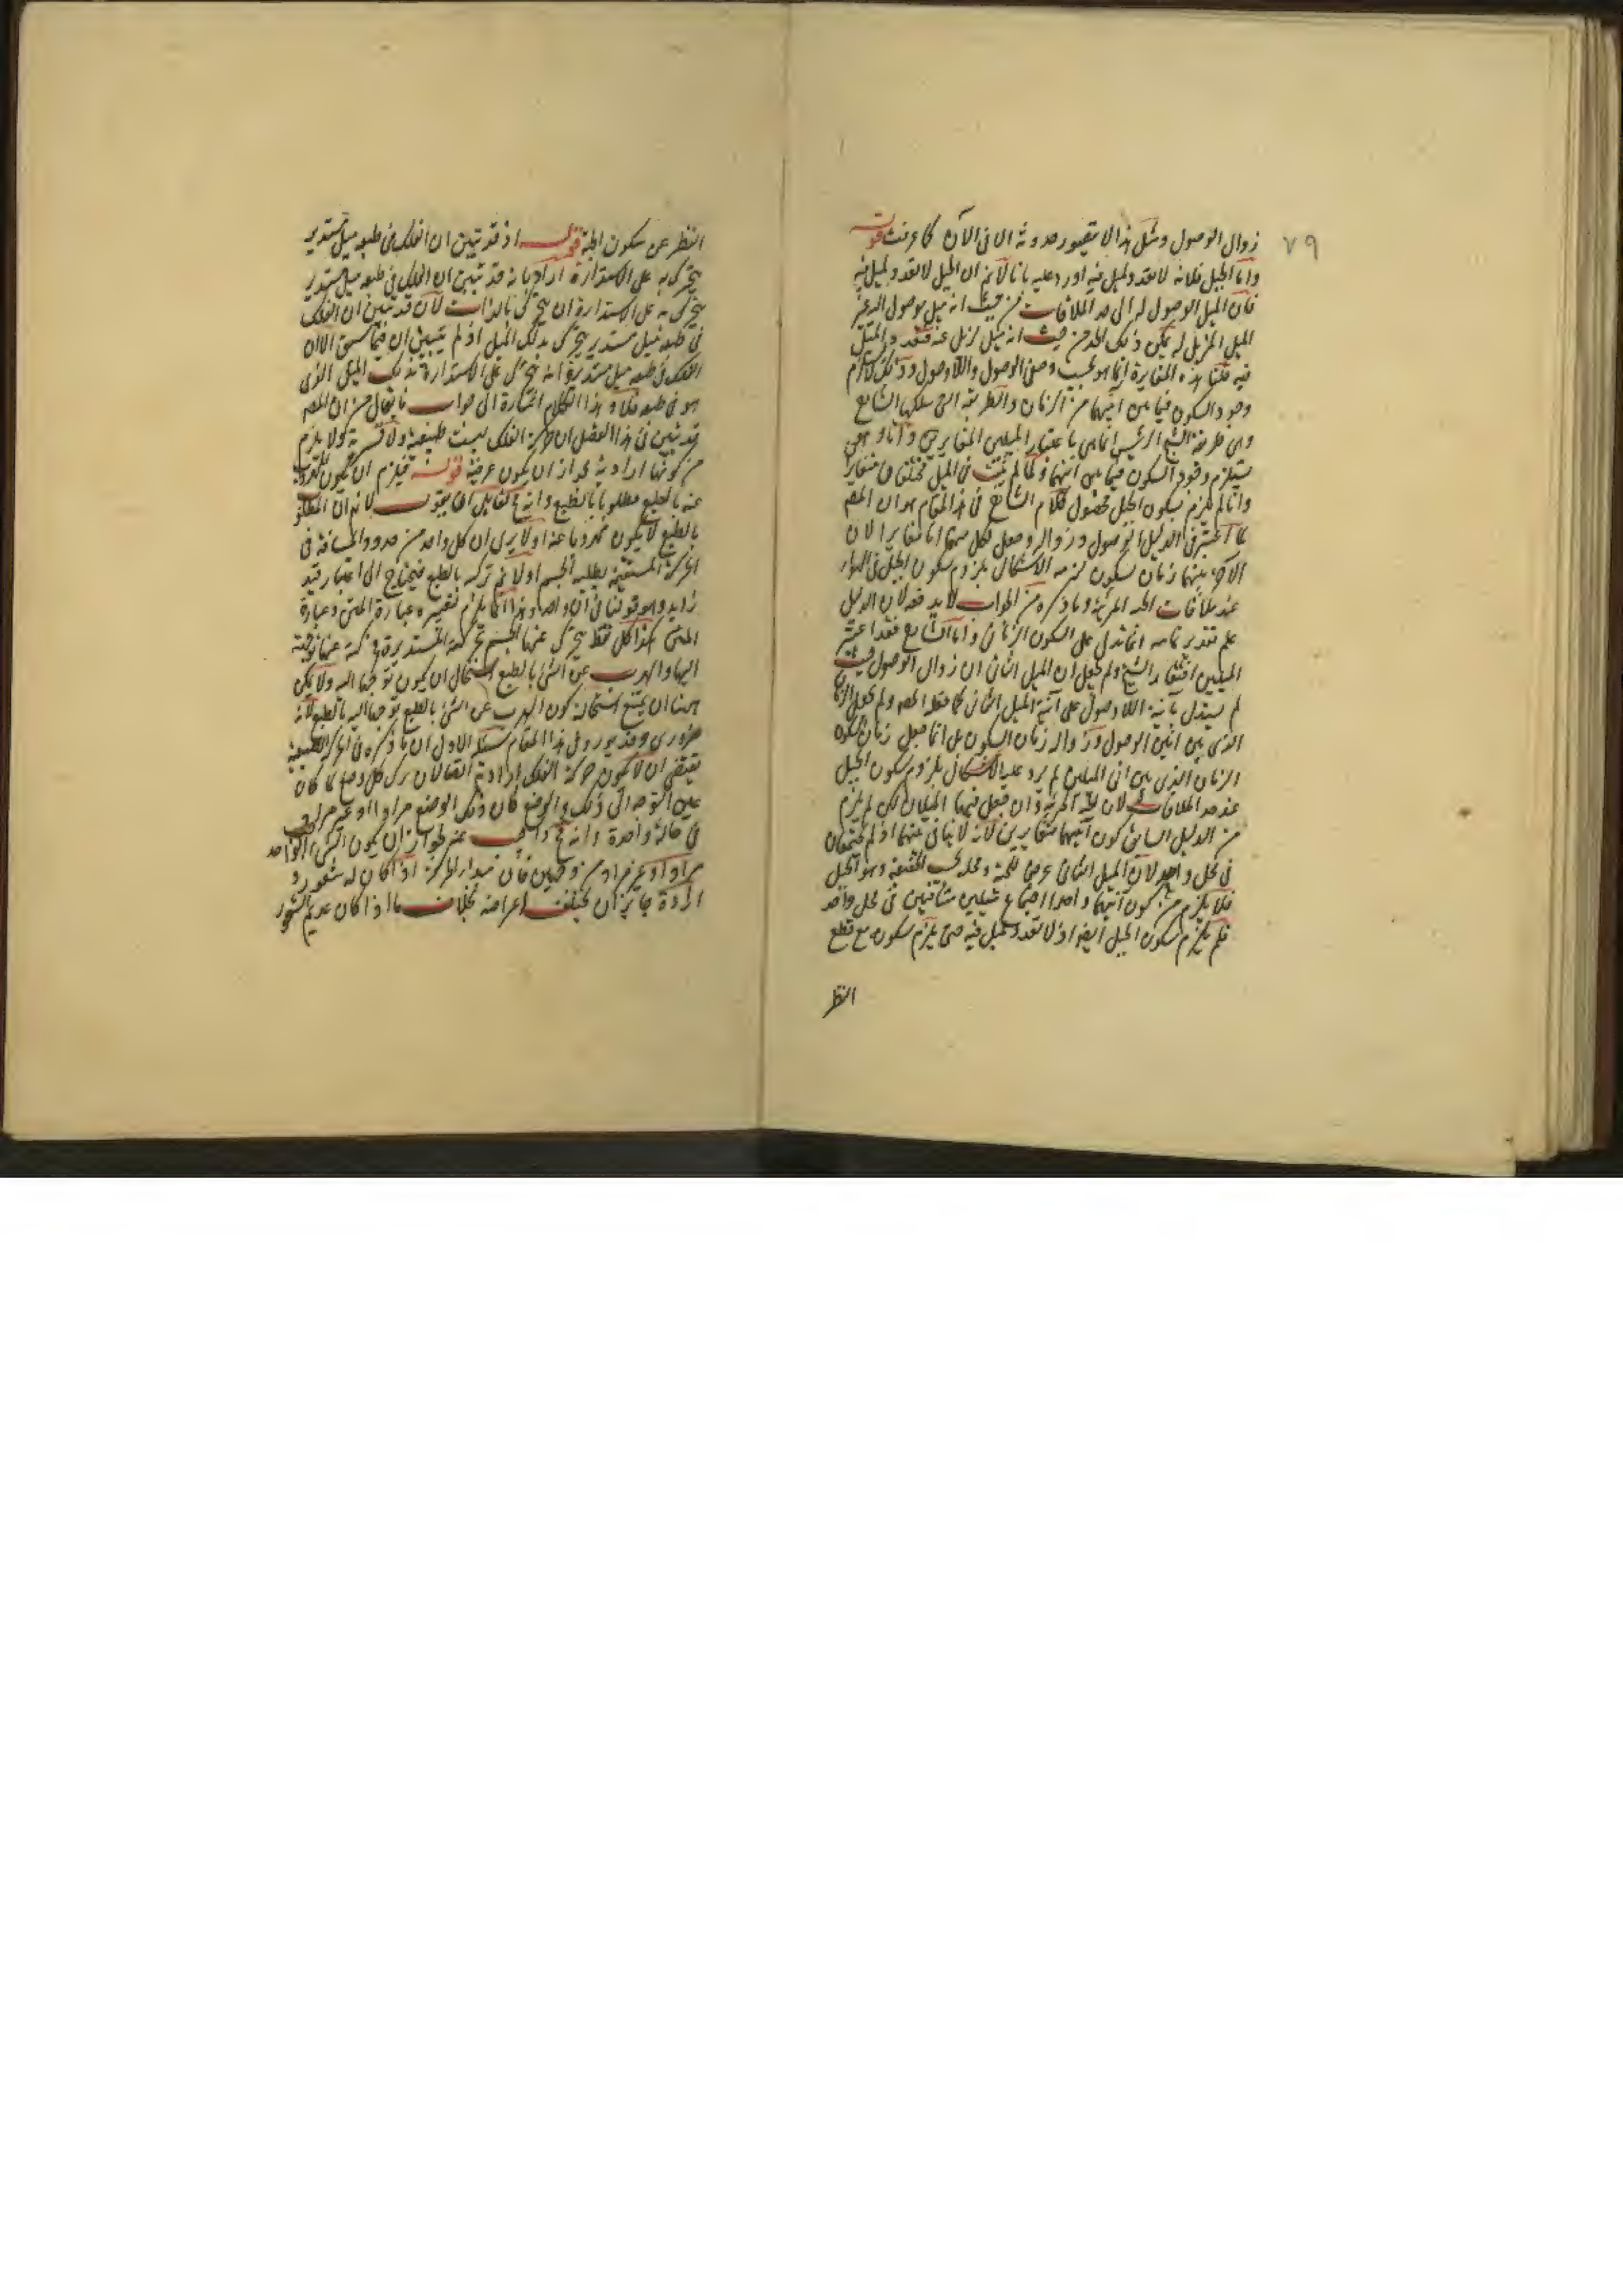 ٧٩
زوال الوصول ومثل هذا لا يتصور حدوثه الا فى الآن كما عرفت قوله
واما الجبل فلانه لا تعدد لميل فيه اورد عليه بانا لانم ان الجبل لا تعدد لميل فيه
فان الميل الموصل له الى حد الملاقات من حيث انه ميل موصل اليه غير
الميل المزيل له عن ذلك الحد من حيث انه ميل مزيل عنه فتعدد الميل
فيه قلنا هذه المغايرة انما هو بحسب وصفى الوصول واللاوصول وذلك لا يلزم
وجود السكون فيما بين آنيهما من الزمان والطريقة التى سلكها الشارح
وهى طريقة الشيخ الرئيس انما هى باعتبار الميلين المتغايرين
يستلزم وجود السكون فيما بين آنيهما ولما لم يثبت فى الجبل ميلان متغايران
وانما لم يلزم سكون الجبل محصول كلام الشارح فى هذا المقام هو ان المصـ
لما اعتبر فى الدليل الوصول وزواله وجعل لكل منهما انا مغايرا لان
الآخر بينهما زمان سكون لزمه الاشكال بلزوم سكون الجبل فى الهواء
عند ملاقات الحبة المرمية وما ذكره من الجواب لا يدفعه لان الدليل
على تقدير تمامه انما تدل على السكون الزمانى واما الشارح فقد اعتبر
الميلين اقتفاء بالشيخ ولم يجعل ان الميل الثانى ان زوال الوصول حيث
لم يستدل بآنية اللاوصول على آنية الميل الثانى كما فعله المصـ ولم يجعل الزمان
الذى بين آنين الوصول وزواله زمان السكون بل انما جعل زمان السكون
الزمان الذى بين آنى الميلين لم يرد عليه الاشكال بلزوم سكون الجبل
عند حد الملاقات لان الحبة المرمية وان جعل فيها الميلان لكن لم يلزم
من الدليل السابق كون آنيهما متغايرين لانه لا تنافى بينهما اذ لم يجتمعا
فى محل واحد لان الميل الثانى عرضى للحبة ومحله بالحقيقة وهو الجبل
فلا يلزم من كون آنيهما واحدا اجتماع ميلين متنافيين فى محل واحد
فلم يلزم سكون الجبل ايضا اذ لا تعدد لميل فيه حتى يلزم سكونه مع قطع
النظر
النظر عن سكون الحبة قوله اذ قد تبين ان الفلك فى طبعه ميل مستدير
يتحرك به على الاستدارة اراد بانه قد تبين ان الفلك فى طبعه ميل مستدير
يتحرك به على الاستدارة ان يتحرك بالذات لا ان قد تبين ان الفلك
فى طبعه ميل مستدير يتحرك بذلك الميل اذ لم يتبين ان فيما سبق الا ان
الفلك فى طبعه ميل مستدير وانه يتحرك على الاستدارة بذلك الميل الذى
هو فى طبعه فلا وهذا الكلام اشارة الى جواب ما يقال من ان المصـ
قد تبين فى هذا الفصل ان حركة الفلك ليست طبيعية ولا قسرية ولا يلزم
من كونها ارادية لجواز ان يكون عرضية قوله فيلزم ان يكون المهروب
عنه بالطبع مطلوبا بالطبع وانه مح لقائل ان يقول لانم ان المطلوب
بالطبع لا يكون مهروبا عنه اولا يرى ان كل واحد من حدود المسافة فى
الحركة المستقيمة يطلبه الجسم اولا ثم تركه بالطبع فيحتاج الى اعتبار قيد
زايد وهو قولنا فى آن واحد وهذا انما يلزم تفسيره عبارة المتن وعبارة
المتن هكذا كل نقطة يتحرك عنها الجسم بحركة المستديرة فحركته عنها توجه
اليها والهرب عن الشئ بالطبع استحال ان يكون توجها اليه ولا يمكن
ههنا ان يمنع استحالة كون الهرب عن الشئ بالطبع توجها اليه بالطبع لانه
ضرورى وقد يورد على هذا المقام اسئلة الاول ان ما ذكره فى الحركة الطبيعية
يقتضى ان لا يكون حركة الفلك ارادية ايضا لان ترك كل وضع لما كان
عين التوجه الى ذلك الوضع كان ذلك الوضع مرادا وغير مراد
فى حالة واحدة وانه مح واجيب عنه بجواز ان يكون الشئ الواحد
مرادا وغير مراد من وجهين فان مبدا الحركة اذا كان له شعور و
ارادة جايز ان يختلف اغراضه بخلاف ما اذا كان عديم الشعور